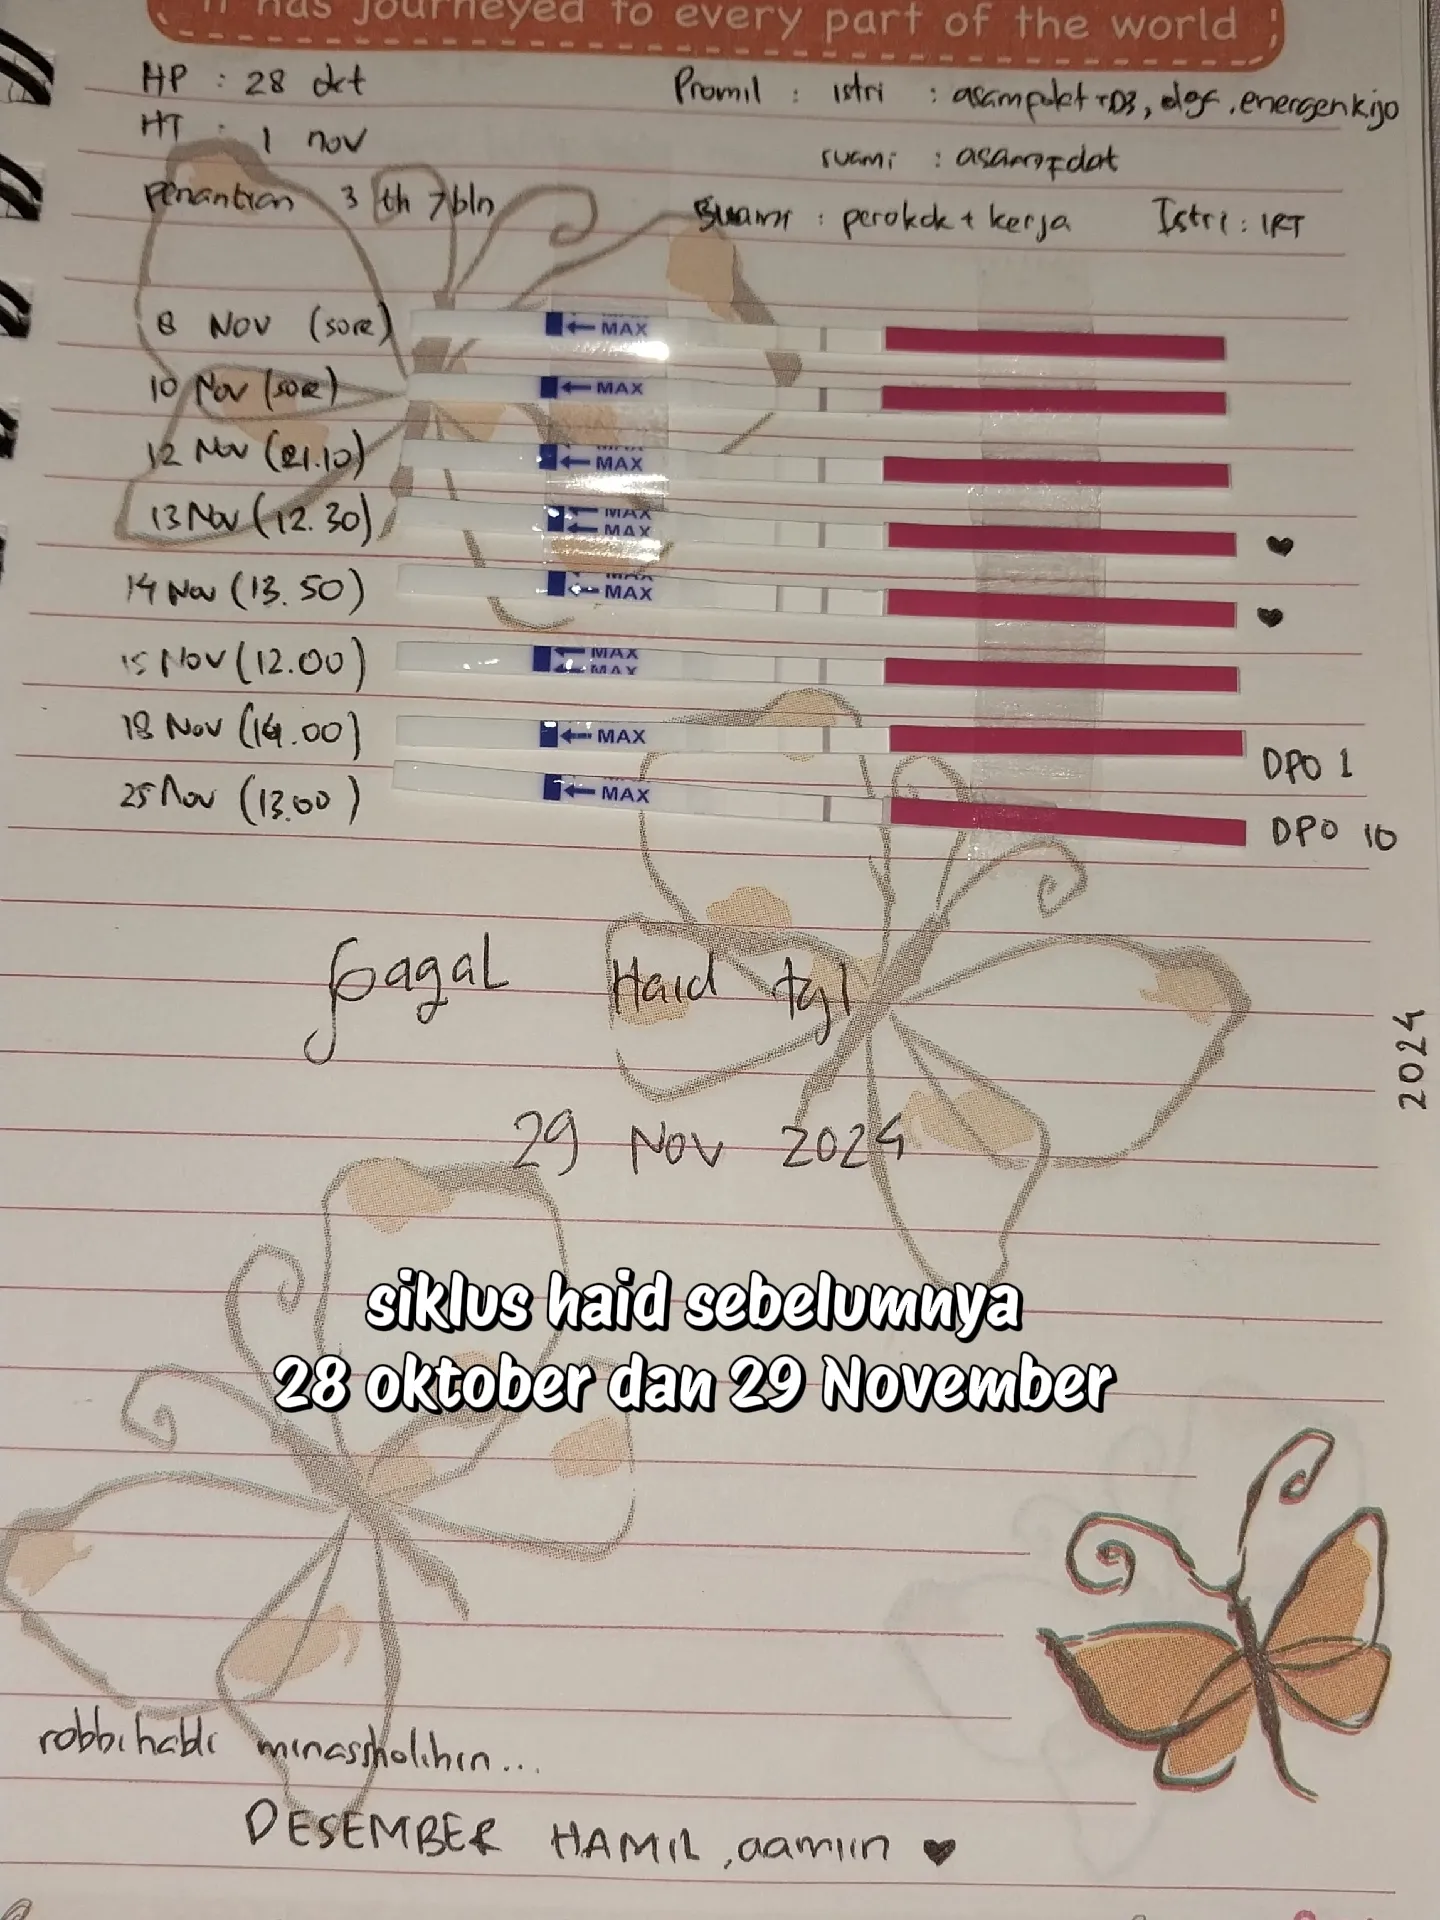 it has journeyed to every part of the world
HP : 28 okt
Promil : istri : asamfolat + D3, dgf, energenkijo
HT : 1 nov
suami : asamfolat
penantian 3 th 7 bln
Suami : perokok + kerja Istri : IRT
8 Nov (sore)
MAX
10 Nov (sore)
MAX
12 Nov (21.10)
MAX
13 Nov (12.30)
MAX
MAX
♥
14 Nov (13.50)
MAX
MAX
♥
15 Nov (12.00)
MAX
MAX
18 Nov (14.00)
MAX
DPO 1
25 Nov (13.00)
MAX
DPO 10
gagal Haid tgl
29 Nov 2024
2024
siklus haid sebelumnya
28 oktober dan 29 November
robbihabli minassholihin...
DESEMBER HAMIL, aamiin ♥